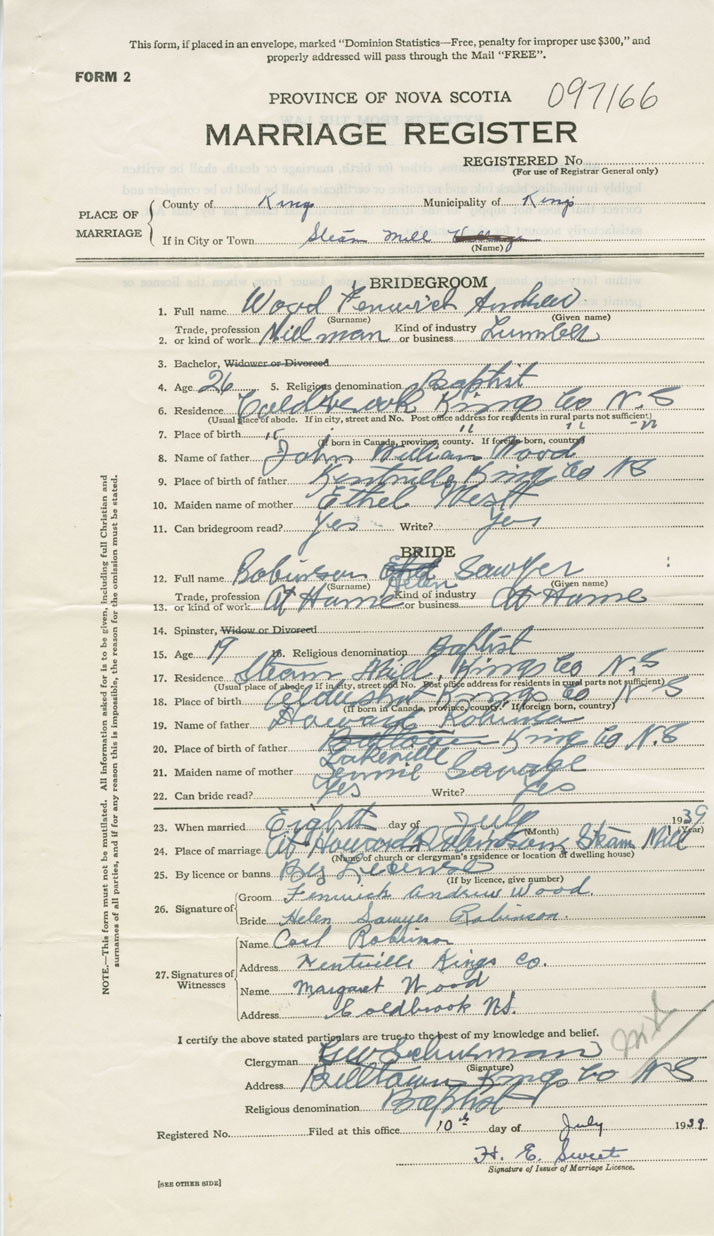 This form, if placed in an envelope, marked "Dominion Statistics—Free, penalty for improper use $300," and
properly addressed will pass through the Mail "FREE".
FORM 2
PROVINCE OF NOVA SCOTIA 097166
MARRIAGE REGISTER
REGISTERED No.
(For use of Registrar General only)
PLACE OF MARRIAGE
County of Kings Municipality of Kings
If in City or Town Steam Mill Village
(Name)
BRIDEGROOM
1. Full name Wood Fenwick Andrew
(Surname) (Given name)
2. Trade, profession or kind of work Mill man Kind of industry or business Lumber
3. Bachelor, Widower or Divorced
4. Age 26 5. Religious denomination Baptist
6. Residence Coldbrook Kings Co N.S
(Usual place of abode. If in city, street and No. Post office address for residents in rural parts not sufficient)
7. Place of birth " " " "
(If born in Canada, province, county. If foreign born, country)
8. Name of father John William Wood
9. Place of birth of father Kentville King Co NS
10. Maiden name of mother Ethel West
11. Can bridegroom read? Yes Write? Yes
BRIDE
12. Full name Robinson Helen Sawyer
(Surname) (Given name)
13. Trade, profession or kind of work At Home Kind of industry or business At Home
14. Spinster, Widow or Divorced
15. Age 19 16. Religious denomination Baptist
17. Residence Steam Mill, Kings Co N.S
(Usual place of abode. If in city, street and No. Post office address for residents in rural parts not sufficient)
18. Place of birth Kings Co N S
(If born in Canada, province, county. If foreign born, country)
19. Name of father Howard Robinson
20. Place of birth of father Lakeville King Co N.S
21. Maiden name of mother Sawyer
22. Can bride read? Yes Write? Yes
23. When married Eighth day of July 1939
(Month) (Year)
24. Place of marriage At Howard Robinson, Steam Mill
(Name of church or clergyman's residence or location of dwelling house)
25. By licence or banns By License
(If by licence, give number)
26. Signature of
Groom Fenwick Andrew Wood
Bride Helen Sawyer Robinson.
27. Signatures of Witnesses
Name Carl Robinson
Address Kentville Kings Co.
Name Margaret Wood
Address Coldbrook NS.
I certify the above stated particulars are true to the best of my knowledge and belief.
Clergyman Schurman
(Signature)
Address Billtown Kings Co N S
Religious denomination Baptist
Registered No. Filed at this office 10th day of July 1939
H. E. Sweet
Signature of Issuer of Marriage Licence.
[SEE OTHER SIDE]
NOTE.—This form must not be mutilated. All information asked for is to be given, including full Christian and
surnames of all parties, and if for any reason this is impossible, the reason for the omission must be stated.